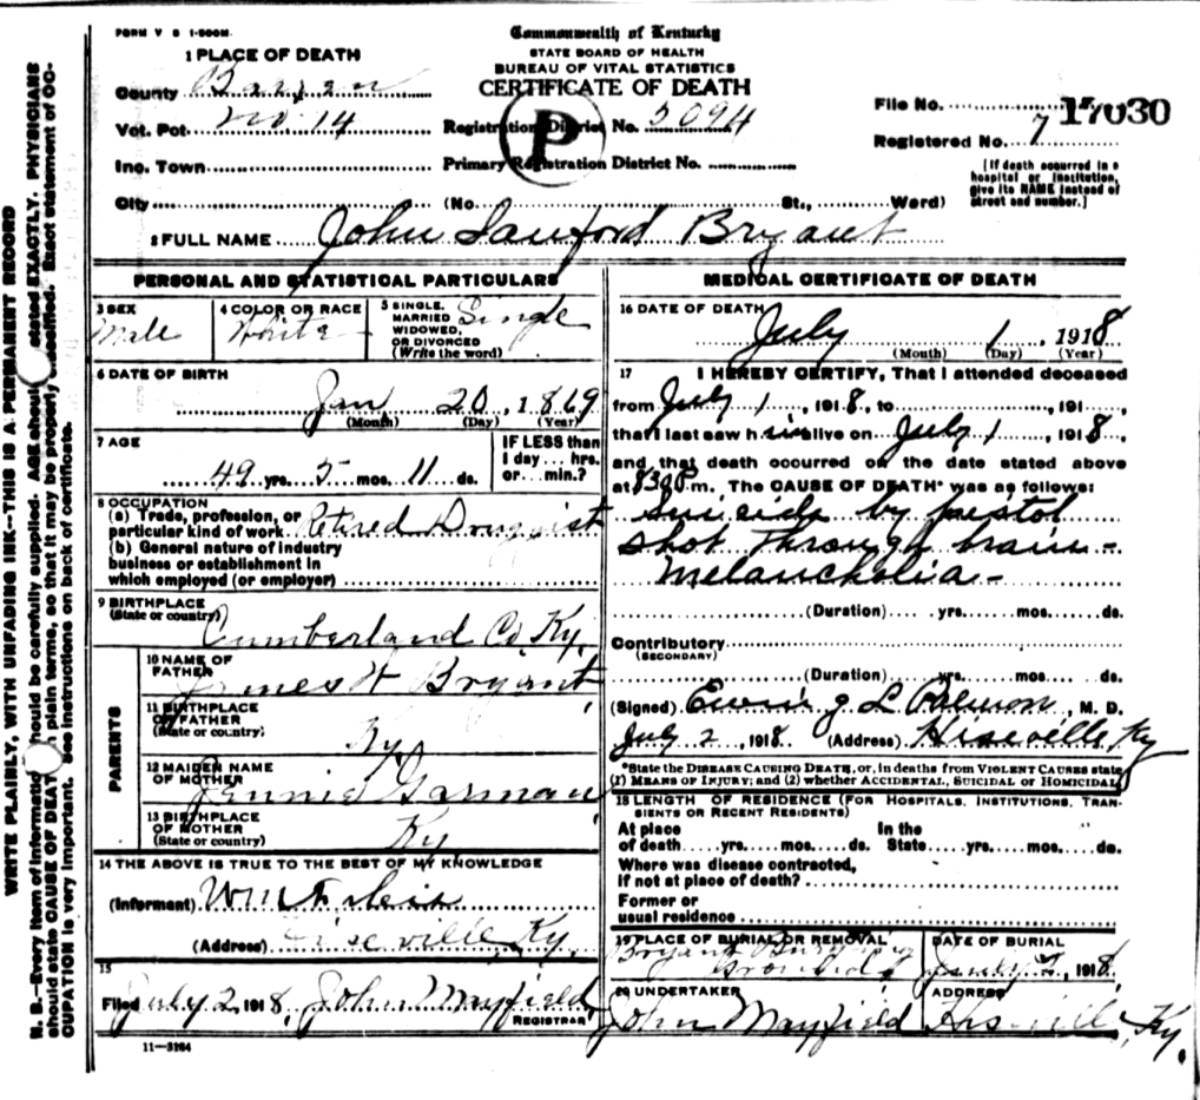 FORM V S 1-500M
Commonwealth of Kentucky
STATE BOARD OF HEALTH
BUREAU OF VITAL STATISTICS
CERTIFICATE OF DEATH
1 PLACE OF DEATH
County Barren
Vot. Pct. No 14
Registration District No. 5094
File No. 17030
Registered No. 7
Inc. Town
Primary Registration District No.
[If death occurred in a hospital or institution, give its NAME instead of street and number.]
City (No. St., Ward)
P
2 FULL NAME John Sanford Bryant
PERSONAL AND STATISTICAL PARTICULARS
3 SEX
Male
4 COLOR OR RACE
White
5 SINGLE, MARRIED WIDOWED, OR DIVORCED (Write the word)
Single
6 DATE OF BIRTH
Jan 20, 1869
(Month) (Day) (Year)
7 AGE
49 yrs. 5 mos. 11 ds.
IF LESS than 1 day ... hrs. or ... min.?
8 OCCUPATION
(a) Trade, profession, or particular kind of work Retired Druggist
(b) General nature of industry business or establishment in which employed (or employer)
9 BIRTHPLACE
(State or country) Cumberland Co. Ky.
PARENTS
10 NAME OF FATHER
James H Bryant
11 BIRTHPLACE OF FATHER
(State or country)
Ky
12 MAIDEN NAME OF MOTHER
Jennie Garman
13 BIRTHPLACE OF MOTHER
(State or country)
Ky
14 THE ABOVE IS TRUE TO THE BEST OF MY KNOWLEDGE
(Informant) Wm
(Address) Hiseville Ky.
15
Filed July 2, 1918, John Mayfield
REGISTRAR
11-3184
MEDICAL CERTIFICATE OF DEATH
16 DATE OF DEATH
July 1, 1918
(Month) (Day) (Year)
17 I HEREBY CERTIFY, That I attended deceased
from July 1, 1918, to , 191
that I last saw him alive on July 1, 1918,
and that death occurred on the date stated above
at 830 P.m. The CAUSE OF DEATH* was as follows:
Suicide by pistol
shot through brain -
Melancholia -
(Duration) yrs. mos. ds.
Contributory
(SECONDARY)
(Duration) yrs. mos. ds.
(Signed) M. D.
July 2, 1918. (Address) Hiseville Ky
*State the DISEASE CAUSING DEATH, or, in deaths from VIOLENT CAUSES state
(1) MEANS OF INJURY; and (2) whether ACCIDENTAL, SUICIDAL OR HOMICIDAL
18 LENGTH OF RESIDENCE (FOR HOSPITALS, INSTITUTIONS, TRAN-
SIENTS OR RECENT RESIDENTS)
At place of death yrs. mos. ds. In the State yrs. mos. ds.
Where was disease contracted,
if not at place of death?
Former or
usual residence
19 PLACE OF BURIAL OR REMOVAL
Bryant Burying
Grounds
DATE OF BURIAL
July 2, 1918
20 UNDERTAKER
John Mayfield
ADDRESS
Hiseville, Ky.
WRITE PLAINLY, WITH UNFADING INK--THIS IS A PERMANENT RECORD
N. B.--Every item of information should be carefully supplied. AGE should be stated EXACTLY. PHYSICIANS
should state CAUSE OF DEATH in plain terms, so that it may be properly classified. Exact statement of OC-
CUPATION is very important. See instructions on back of certificate.